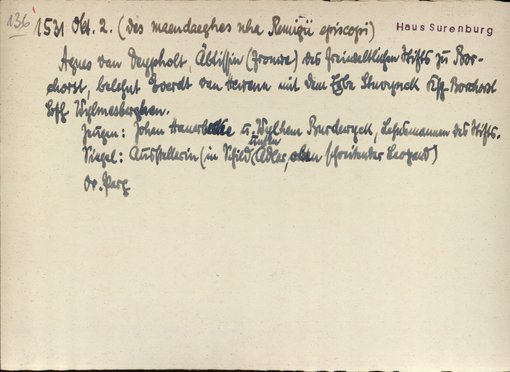 136
1531 Okt. 2. (des maendaeghes nha Remigii episcopi)
Haus Surenburg
Agnes van Deypholt, Äbtissin (Frouwe) des freiweltlichen Stifts zu Bor-
chorst, belehnt Everdt van Hevena mit dem Erbe Kspl. Borchorst
Bsch. Wylmesberghen.
Zeugen: Johan u. Wylhem Burderyck, Lehnsmannen des Stifts.
Siegel: Ausstellerin (in Schild unten Adler, oben schreitender Leopard)
Or. Perg.